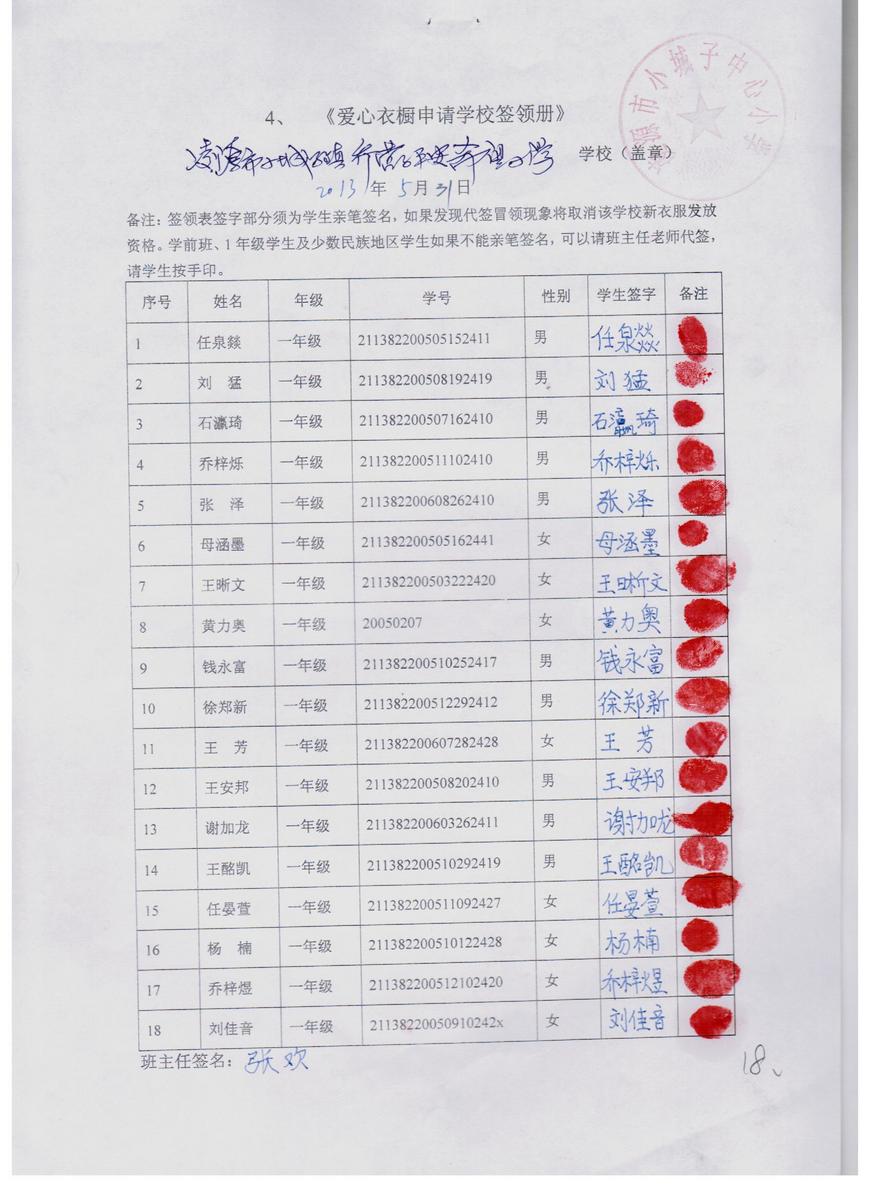 小城子中心小学
4、 《爱心衣橱申请学校签领册》
学校（盖章）
2013年5月31日
备注：签领表签字部分须为学生亲笔签名，如果发现代签冒领现象将取消该学校新衣服发放
资格。学前班、1年级学生及少数民族地区学生如果不能亲笔签名，可以请班主任老师代签，
请学生按手印。
序号 姓名 年级 学号 性别 学生签字 备注
1 任泉燚 一年级 211382200505152411 男 任泉燚
2 刘 猛 一年级 211382200508192419 男 刘猛
3 石瀛琦 一年级 211382200507162410 男 石瀛琦
4 乔梓烁 一年级 211382200511102410 男 乔梓烁
5 张 泽 一年级 211382200608262410 男 张泽
6 母涵墨 一年级 211382200505162441 女 母涵墨
7 王晰文 一年级 211382200503222420 女 王晰文
8 黄力奥 一年级 20050207 女 黄力奥
9 钱永富 一年级 211382200510252417 男 钱永富
10 徐郑新 一年级 211382200512292412 男 徐郑新
11 王 芳 一年级 211382200607282428 女 王 芳
12 王安邦 一年级 211382200508202410 男 王安邦
13 谢加龙 一年级 211382200603262411 男 谢加咙
14 王酩凯 一年级 211382200510292419 男 王酩凯
15 任晏萱 一年级 211382200511092427 女 任晏萱
16 杨 楠 一年级 211382200510122428 女 杨楠
17 乔梓煜 一年级 211382200512102420 女 乔梓煜
18 刘佳音 一年级 21138220050910242x 女 刘佳音
班主任签名：张欢
18、